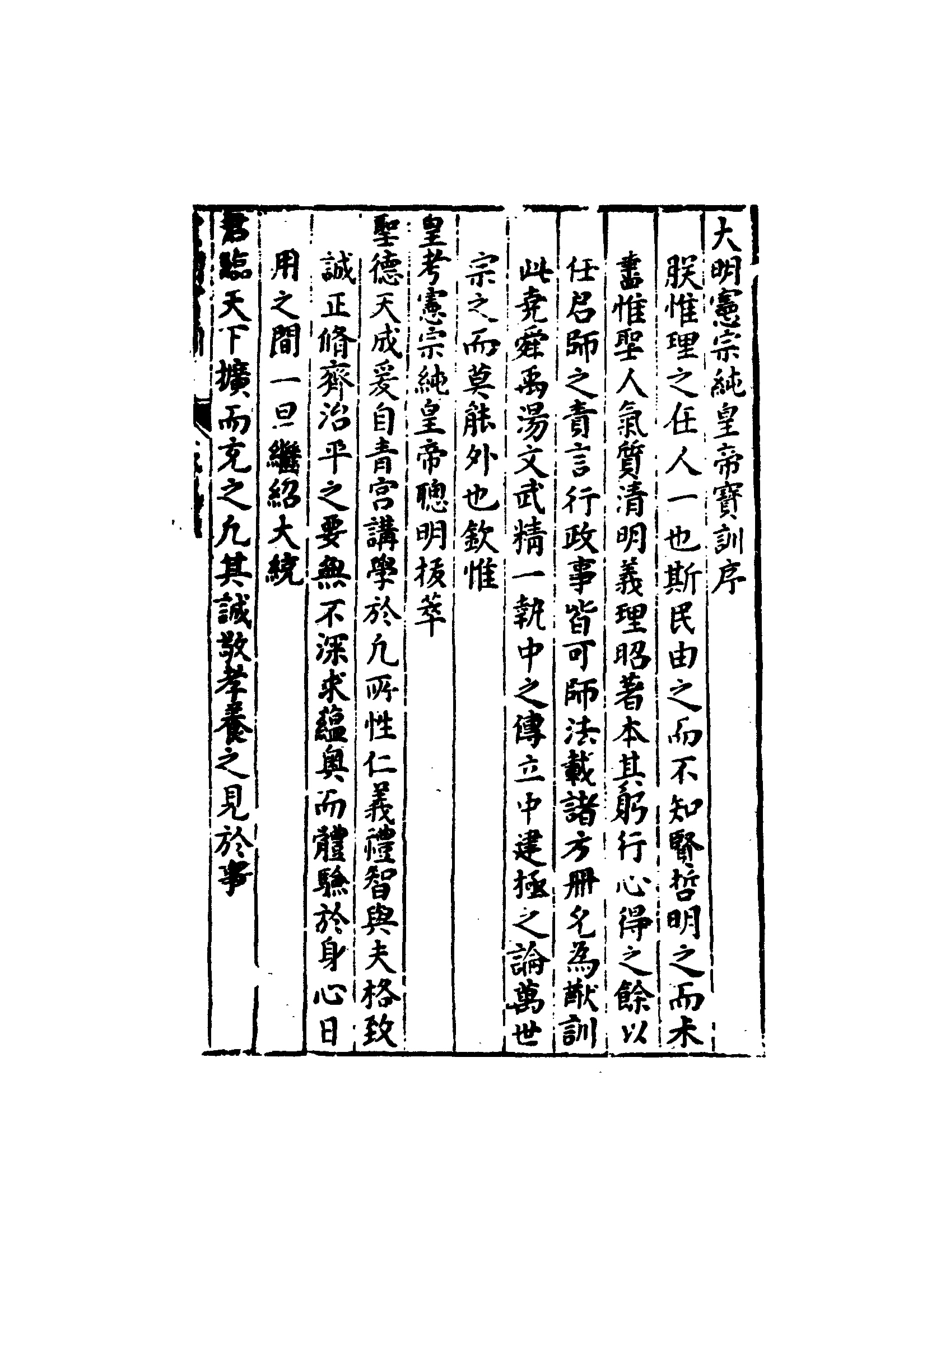 大明憲宗純皇帝寶訓序
朕惟理之在人一也斯民由之而不知賢哲明之而未
盡惟聖人氣質清明義理昭著本其躬行心得之餘以
任君師之責言行政事皆可師法載諸方冊名為猷訓
此堯舜禹湯文武精一執中之傳立中建極之論萬世
宗之而莫能外也欽惟
皇考憲宗純皇帝聰明拔萃
聖德天成爰自青宮講學於凡所性仁義禮智與夫格致
誠正脩齊治平之要無不深求蘊奧而體驗於身心日
用之間一旦繼紹大統
君臨天下擴而充之凡其誠敬孝養之見於事